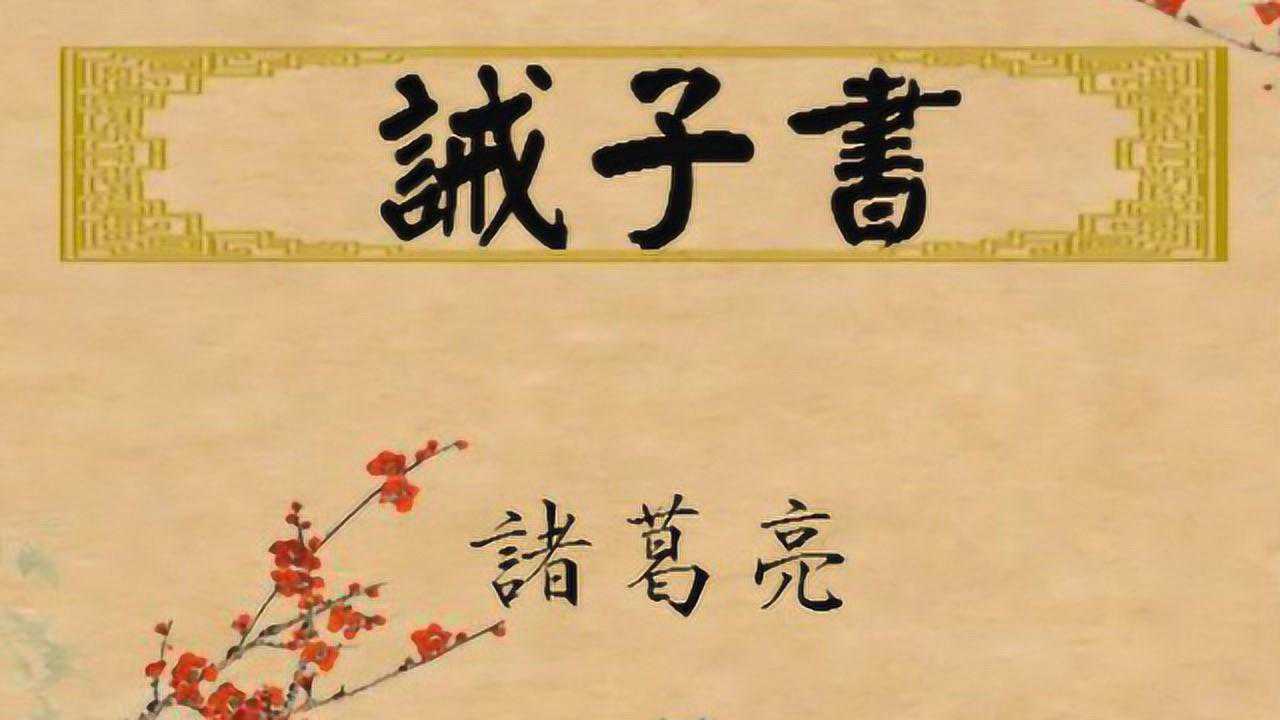 誡子書
諸葛亮